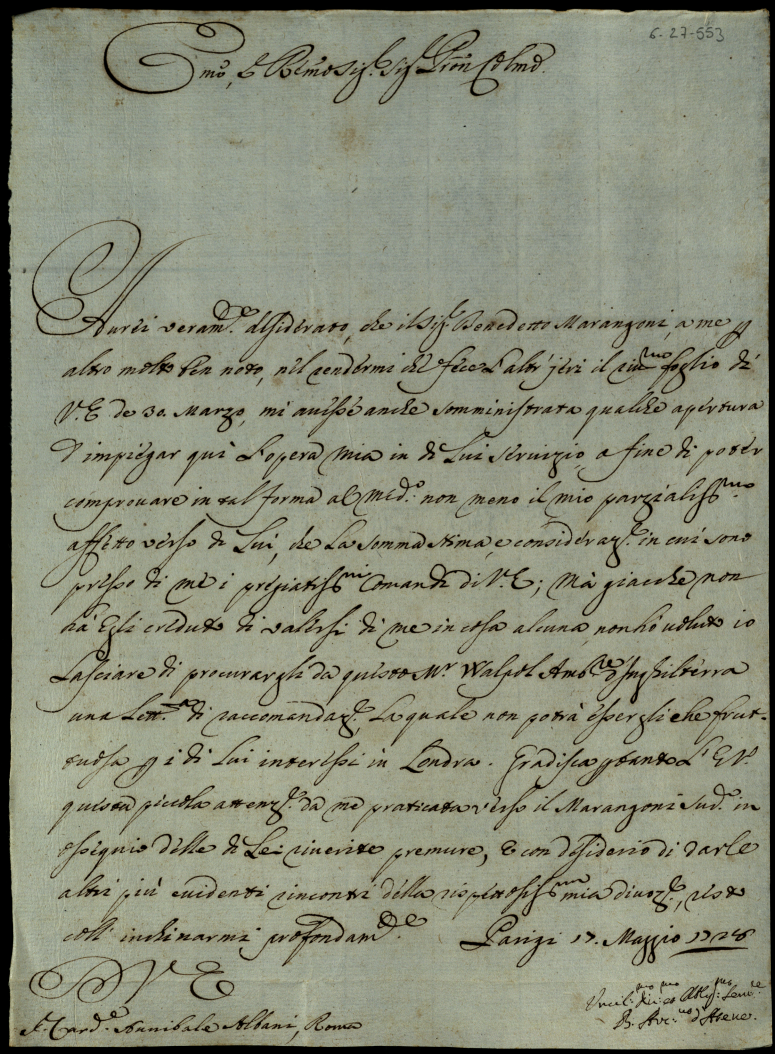 6-27-553
Emo, e Rmo Sig.r Sig.r Pron Colmo.
Aurei veram.te desiderato, che il Sig.r Benedetto Marangoni, a me p
altro molto ben noto, nel rendermi che fece l'altr'jeri il riu.mo foglio di
V.E de 30. Marzo, mi auesse anche somministrata qualche apertura
d'impiegar quì l'opera mia in di Lui seruizio, a fine di poter
comprouare in tal forma al med.o non meno il mio parzialiss.mo
affetto verso di Lui, che la somma stima, e consideraz.e in cui sono
presso di me i pregiatiss.mi Comandi di V.E; Mà giacche non
hà Egli creduto di valersi di me in cosa alcuna, non hò uoluto io
lasciare di procurargli da questo Mr. Walpol Amb.re d'Inghilterra
una Lett.ra di raccomandaz.e, la quale non potrà essergli che frut-
tuosa p i di Lui interessi in Londra. Gradisca ptanto l'E.V.
questa piccola attenz.e da me praticata verso il Marangoni sud.o in
ossequio delle di Lei riuerite premure, e con desiderio di darle
altri più euidenti rincontri della rispettosiss.ma mia diuoz.e, resto
coll' inchinarmi profondam.te Parigi 17. Maggio 1728
D V E
S.r Card.le Annibale Albani, Roma
Vmil.mo diu.mo et Obl.mo Seru.re
B. Arc.uo d'Atene.